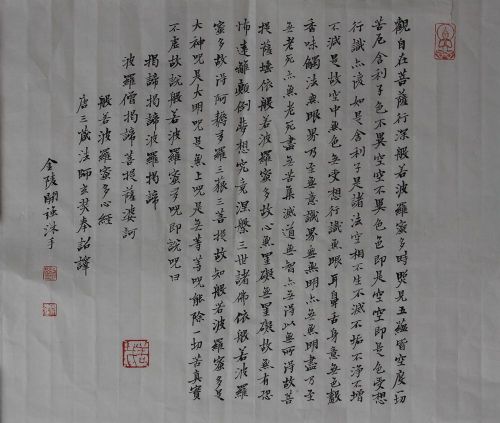 觀自在菩薩行深般若波羅蜜多時照見五蘊皆空度一切
苦厄舍利子色不異空空不異色色即是空空即是色受想
行識亦復如是舍利子是諸法空相不生不滅不垢不淨不增
不減是故空中無色無受想行識無眼耳鼻舌身意無色聲
香味觸法無眼界乃至無意識界無無明亦無無明盡乃至
無老死亦無老死盡無苦集滅道無智亦無得以無所得故菩
提薩埵依般若波羅蜜多故心無罣礙無罣礙故無有恐
怖遠離顛倒夢想究竟涅槃三世諸佛依般若波羅
蜜多故得阿耨多羅三藐三菩提故知般若波羅蜜多是
大神咒是大明咒是無上咒是無等等咒能除一切苦真實
不虛故說般若波羅蜜多咒即說咒曰
揭諦揭諦波羅揭諦
波羅僧揭諦菩提薩婆訶
般若波羅蜜多心經
唐三藏法師玄奘奉詔譯
金陵關強沐手